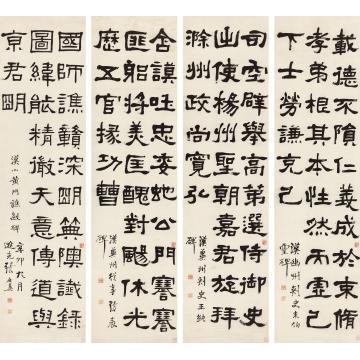 載德不隕仁義成於束脩
孝弟根其本性然而虛己
下士勞謙克己
漢幽州刺史朱伯
靈碑
司空辟舉高第侍御
出使楊州聖朝嘉君旋拜
州政尚寬弘
漢冀州刺史王純
碑
含謨吐忠委虵公門謇謇
匪躬將美匡醜對颺休光
歷五官掾功曹
漢冀州從事張表
碑
國師譙贛深明典奧讖錄
圖緯能精徹天意傳道與
京君明
漢小黃門譙敏碑
辛卯九月
逖先張祖翼